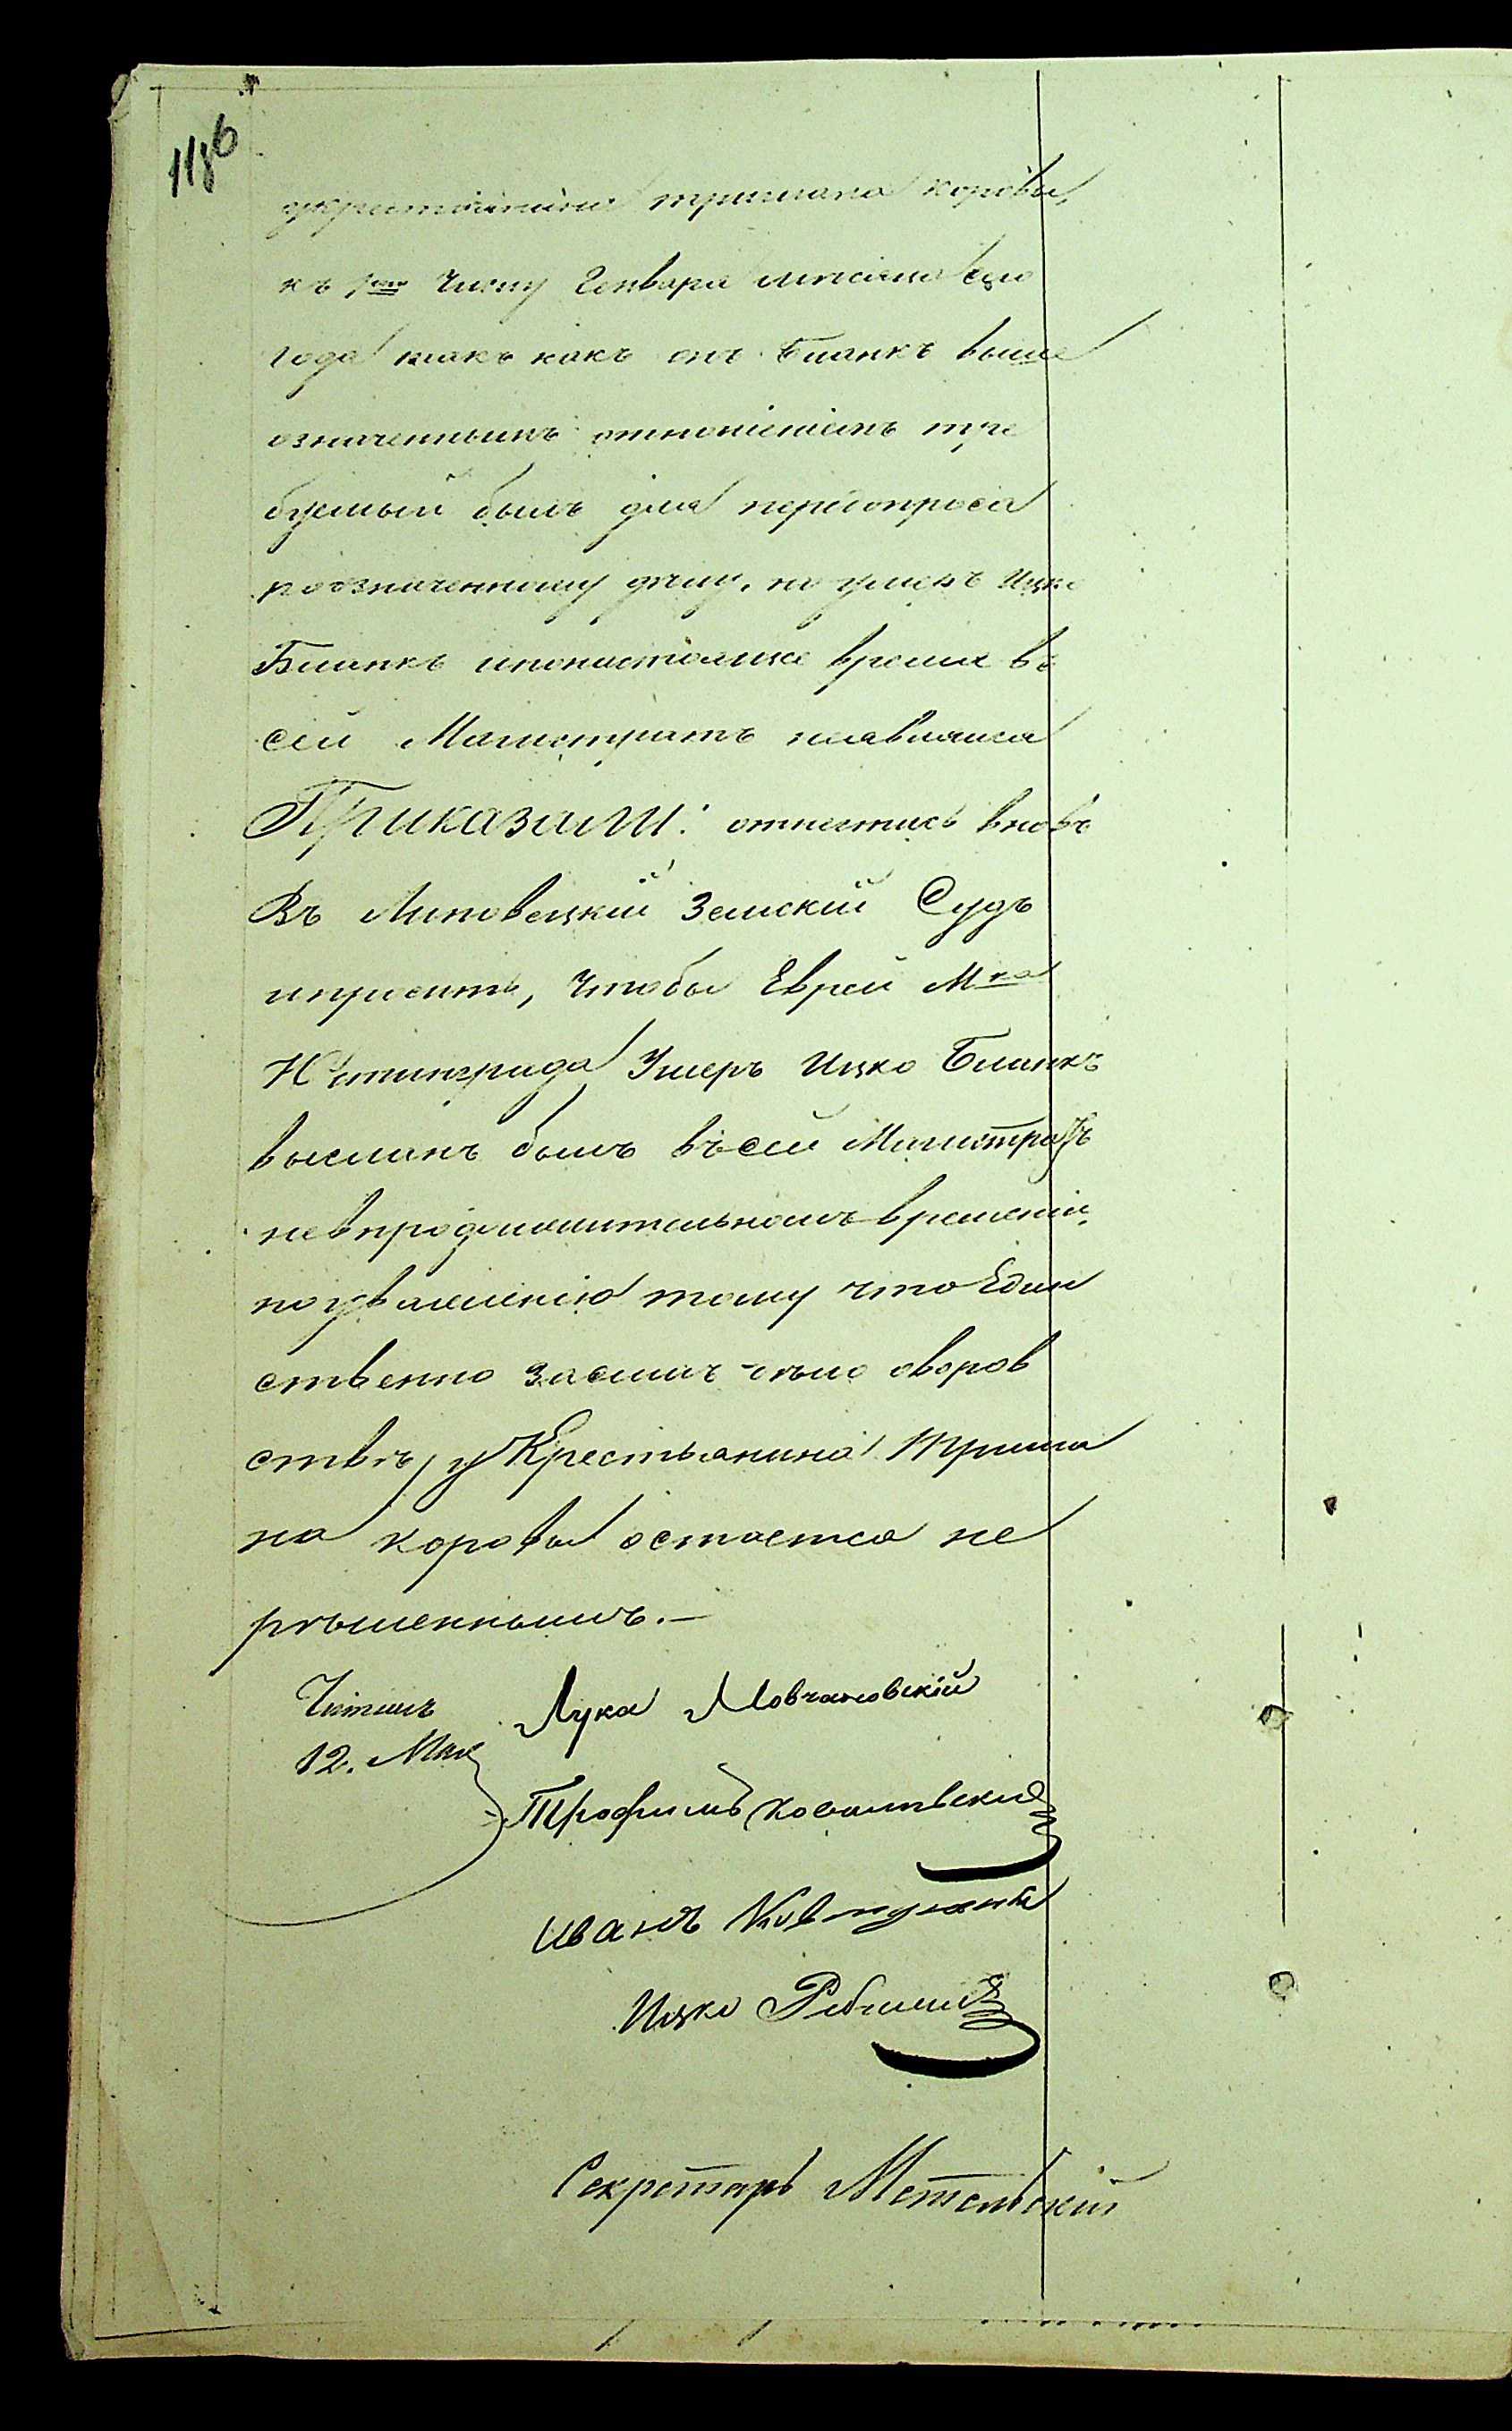 1186
укрестьянина тришана коровы,
къ 1му Числу Генваря месяца сего
года такъ какъ онъ Бланкъ выше
означеннымъ отношеніемъ тре
буемый былъ для переспроса
поозначенному делу, но Ицко
Бланкъ инонастоящее время въ
сей Магистратъ неявился
Приказали: отнестись вновъ
Въ Липовецкій Земскій Судъ
ипросить, чтобы Еврей Мка
Юстинграда Умеръ Ицко Бланкъ
высланъ былъ въсей Магистратъ
невпродолжительномъ времени,
поуваженію тому что Един
ственно засимъ дело оворов
стве, у Крестьянина Триша
на коровы остается не
решеннымъ.—
Читалъ Лука Мовчановскій
12. Мая
Трофимъ Ковалевский
Иванъ
Ицко
Секретарь Метельскій